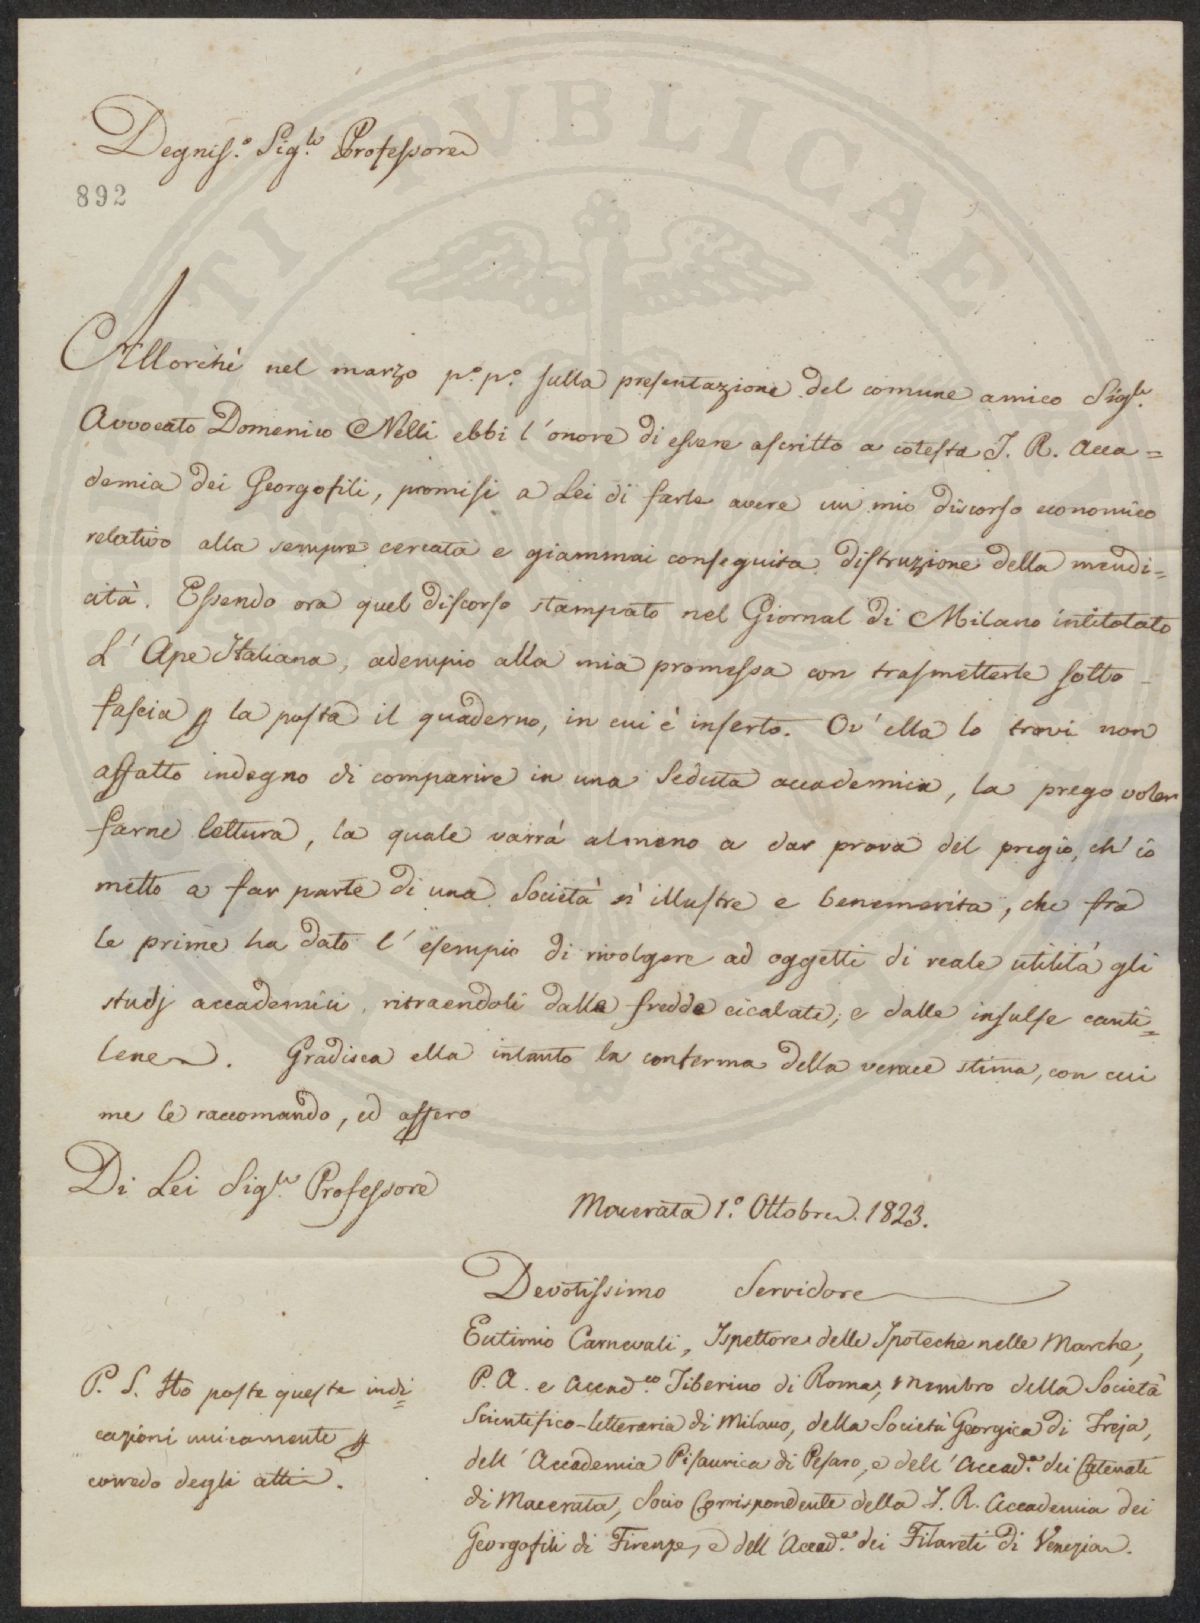 Degniss.º Sig.re Professore
892
Allorchè nel marzo p.º p.º sulla presentazione del comune amico Sig.r
Avvocato Domenico Nelli ebbi l'onore di essere ascritto a cotesta I. R. Acca=
demia dei Georgofili, promisi a Lei di farle avere un mio discorso economico
relativo alla sempre cercata e giammai conseguita distruzione della mendi=
cità. Essendo ora quel discorso stampato nel Giornal di Milano intitolato
L'Ape Italiana, adempio alla mia promessa con trasmetterle sotto
fascia p la posta il quaderno, in cui è inserto. Ov'ella lo trovi non
affatto indegno di comparire in una Seduta accademica, la prego voler
farne lettura, la quale varrà almeno a dar prova del pregio, ch'io
metto a far parte di una Società sì illustre e benemerita, che fra
le prime ha dato l'esempio di rivolgere ad oggetti di reale utilità gli
studj accademici, ritraendoli dalle fredde cicalate, e dalle insulse canti=
lene. Gradisca ella intanto la conferma della verace stima, con cui
me le raccomando, ed offero
Di Lei Sig.re Professore
Macerata 1.º Ottobre 1823.
Devotissimo Servidore
Eutimio Carnevali, Ispettore delle Ipoteche nelle Marche,
P. A. e Accad.co Tiberino di Roma, Membro della Società
Scientifico-letteraria di Milano, della Società Georgica di Treja,
dell'Accademia Pisaurica di Pesaro, e dell'Accad.a dei Catenati
di Macerata, Socio Corrispondente della I. R. Accademia dei
Georgofili di Firenze, e dell'Accad.a dei Filareti di Venezia.
P. S. Ho poste queste indi=
cazioni unicamente p
corredo degli atti.